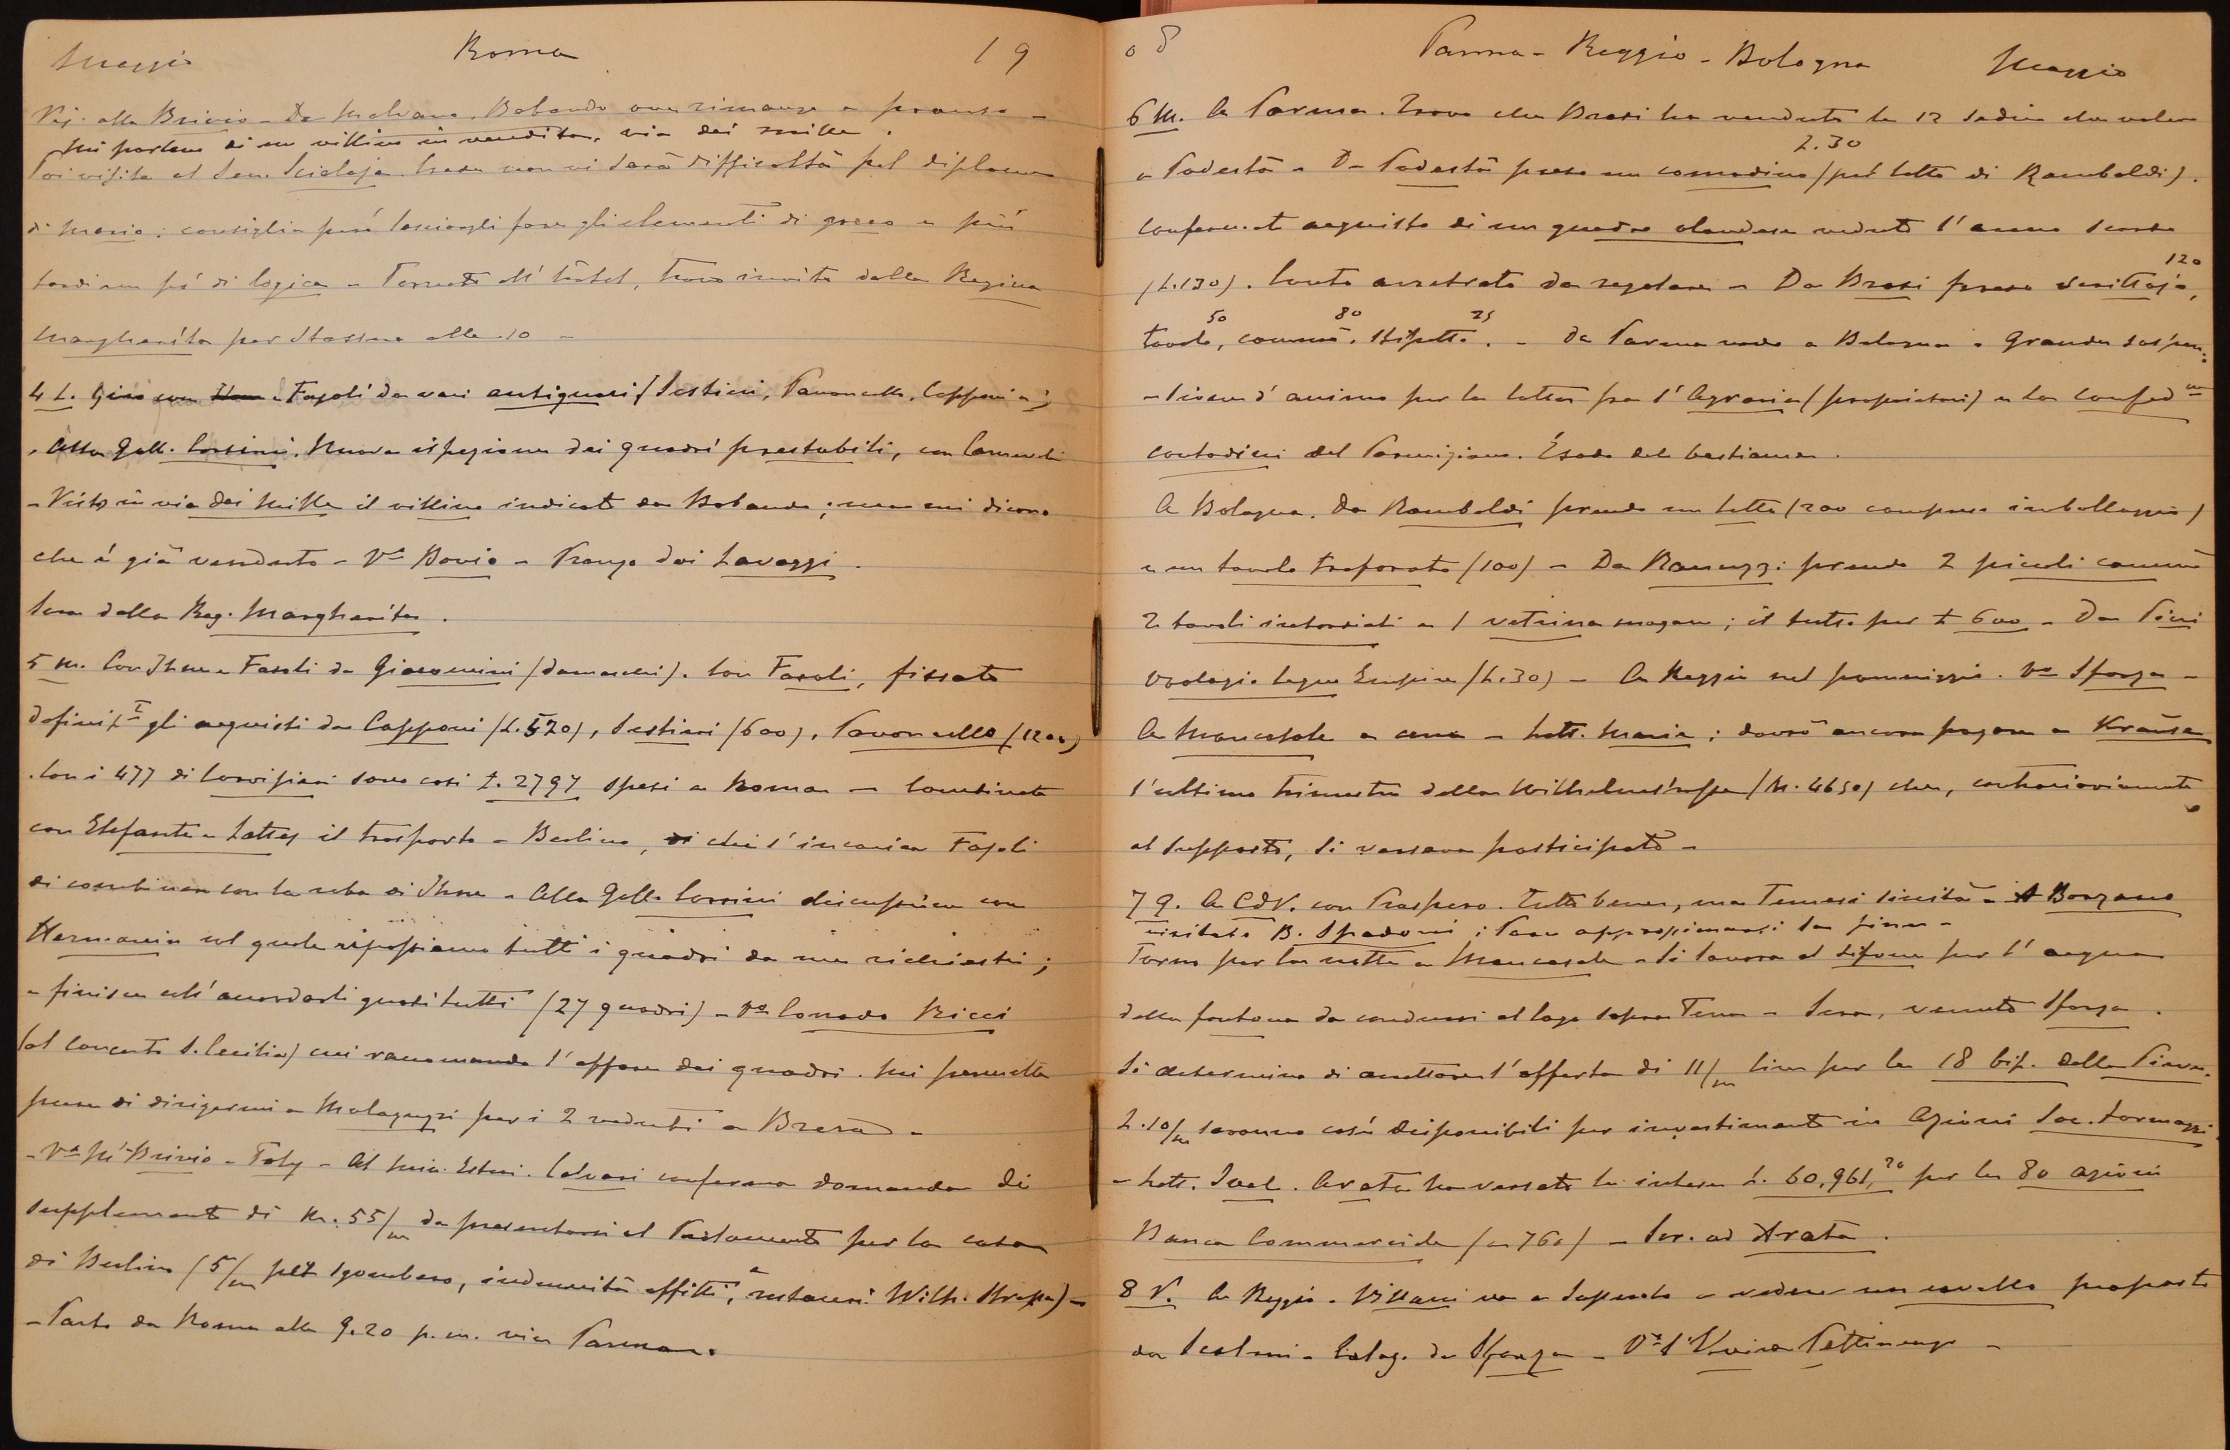 Maggio Roma 19
Vis. alla Brivio - Da Malvano. Bobando ove rimango a pranzo -
Mi parlano di un villino in vendita, via dei mille.
Poi visita al Sen. Scialoja. Crede non vi sarà difficoltà pel diploma
di Mario: consiglia però lasciargli fare gli elementi di greco e più
tardi un pò di logica - Tornato all'hôtel, trovo invito dalla Regina
Margherita per stassera alle 10 -
4 L. Giro con e Fasoli da vari antiquari (Sestieri, Pavoncello, Capponi a;
. Alla Gall. Corsini. Nuova ispezione dei quadri prestabili, con
- Visto in via dei Mille il villino indicato da Bobando; ma mi dicono
che è già venduto - Va Bovio - Pranzo dai Lavaggi.
Sera dalla Reg. Margherita.
5 M. Con Ihne e Fasoli da Giacomini (damaschi). Con Fasoli, fissato
definit. gli acquisti da Capponi (L. 520), Sestieri (600), Pavoncello (1200)
. Con i 477 di Corvisieri sono così L. 2797 spesi a Roma - Combinato
con Elefante e Lattes il trasporto a Berlino, che s'incarica Fasoli
di combinare con la roba di Ihne - Alla Gall. Corsini discussione con
Hermanin col quale ripassiamo tutti i quadri da me richiesti;
e finisce coll'accordarli quasi tutti (27 quadri) - Va Corrado Ricci
(al Concerto S. Cecilia) cui raccomando l'affare dei quadri. Mi permette
pure di dirigermi a Malaguzzi per i 2 veduti a Brera -
- Va Mi Brivio - Foly - Al Min. Esteri. Calvari conferma domanda di
supplemento di M. 55/m da presentarsi al Parlamento per la casa
di Berlino (5/m per sgombero, indennità affitti, e restauri Wilh. Strasse) -
- Parto da Roma alle 9.20 p.m. via Parma.
08 Parma - Reggio - Bologna Maggio
6 M. A Parma. Trovo che Brasi ha venduto le 12 sedie che volevo
L. 30
a Podestà - Da Podestà preso un comodino (pel letto di Rambaldi).
Conferm. acquisto di un quadro olandese veduto l'anno scorso
120
(L. 130). Conto arretrato da regolare - Da Brasi preso scrittojo,
50 80 25
tavolo, commò, stipetto. - Da Parma vado a Bologna - Grande sospen-
- sione d'animo per la lotta fra l'Agraria (proprietari) e la Confed.ne
contadini del Parmigiano. Esodo del bestiame.
A Bologna. Da Rambaldi prendo un letto (200 compreso imballaggio)
e un tavolo traforato (100) - Da Ranuzzi prendo 2 piccoli commò
2 tavoli intarsiati e 1 vetrina mogano; il tutto per L. 600 - Da Pini
orologio legno Empire (L. 30) - A Reggio nel pomeriggio. Va Sforza -
A Mancasale a cena - Lett. Maria: dovrò ancora pagare a Krause
l'ultimo trimestre della Wilhelmstrasse (M. 4650) che, contrariamente
al supposto, si versava posticipato -
7 G. A CdV. con Prospero. Tutto bene, ma temesi siccità - A Borzano
visitato B. Spadoni; pare approssimarsi la fine -
Torno per la notte a Mancasale - Si lavora al sifone per l'acqua
della fontana da condursi al lago sopra Terra - Sera, venuto Sforza.
Si determina di accettare l'offerta di 11/m lire per le 18 bif. della Pieve.
L. 10/m saranno così disponibili per investimento in Azioni Soc. Formaggi
- Lett. Arata ha versato le intere L. 60,961,20 per le 80 azioni
Banca Commerciale (a 760) - Scr. ad Arata.
8 V. A Reggio. Villani va a vedere un cavallo proposto
da - da Sforza - Va Pettinengo -